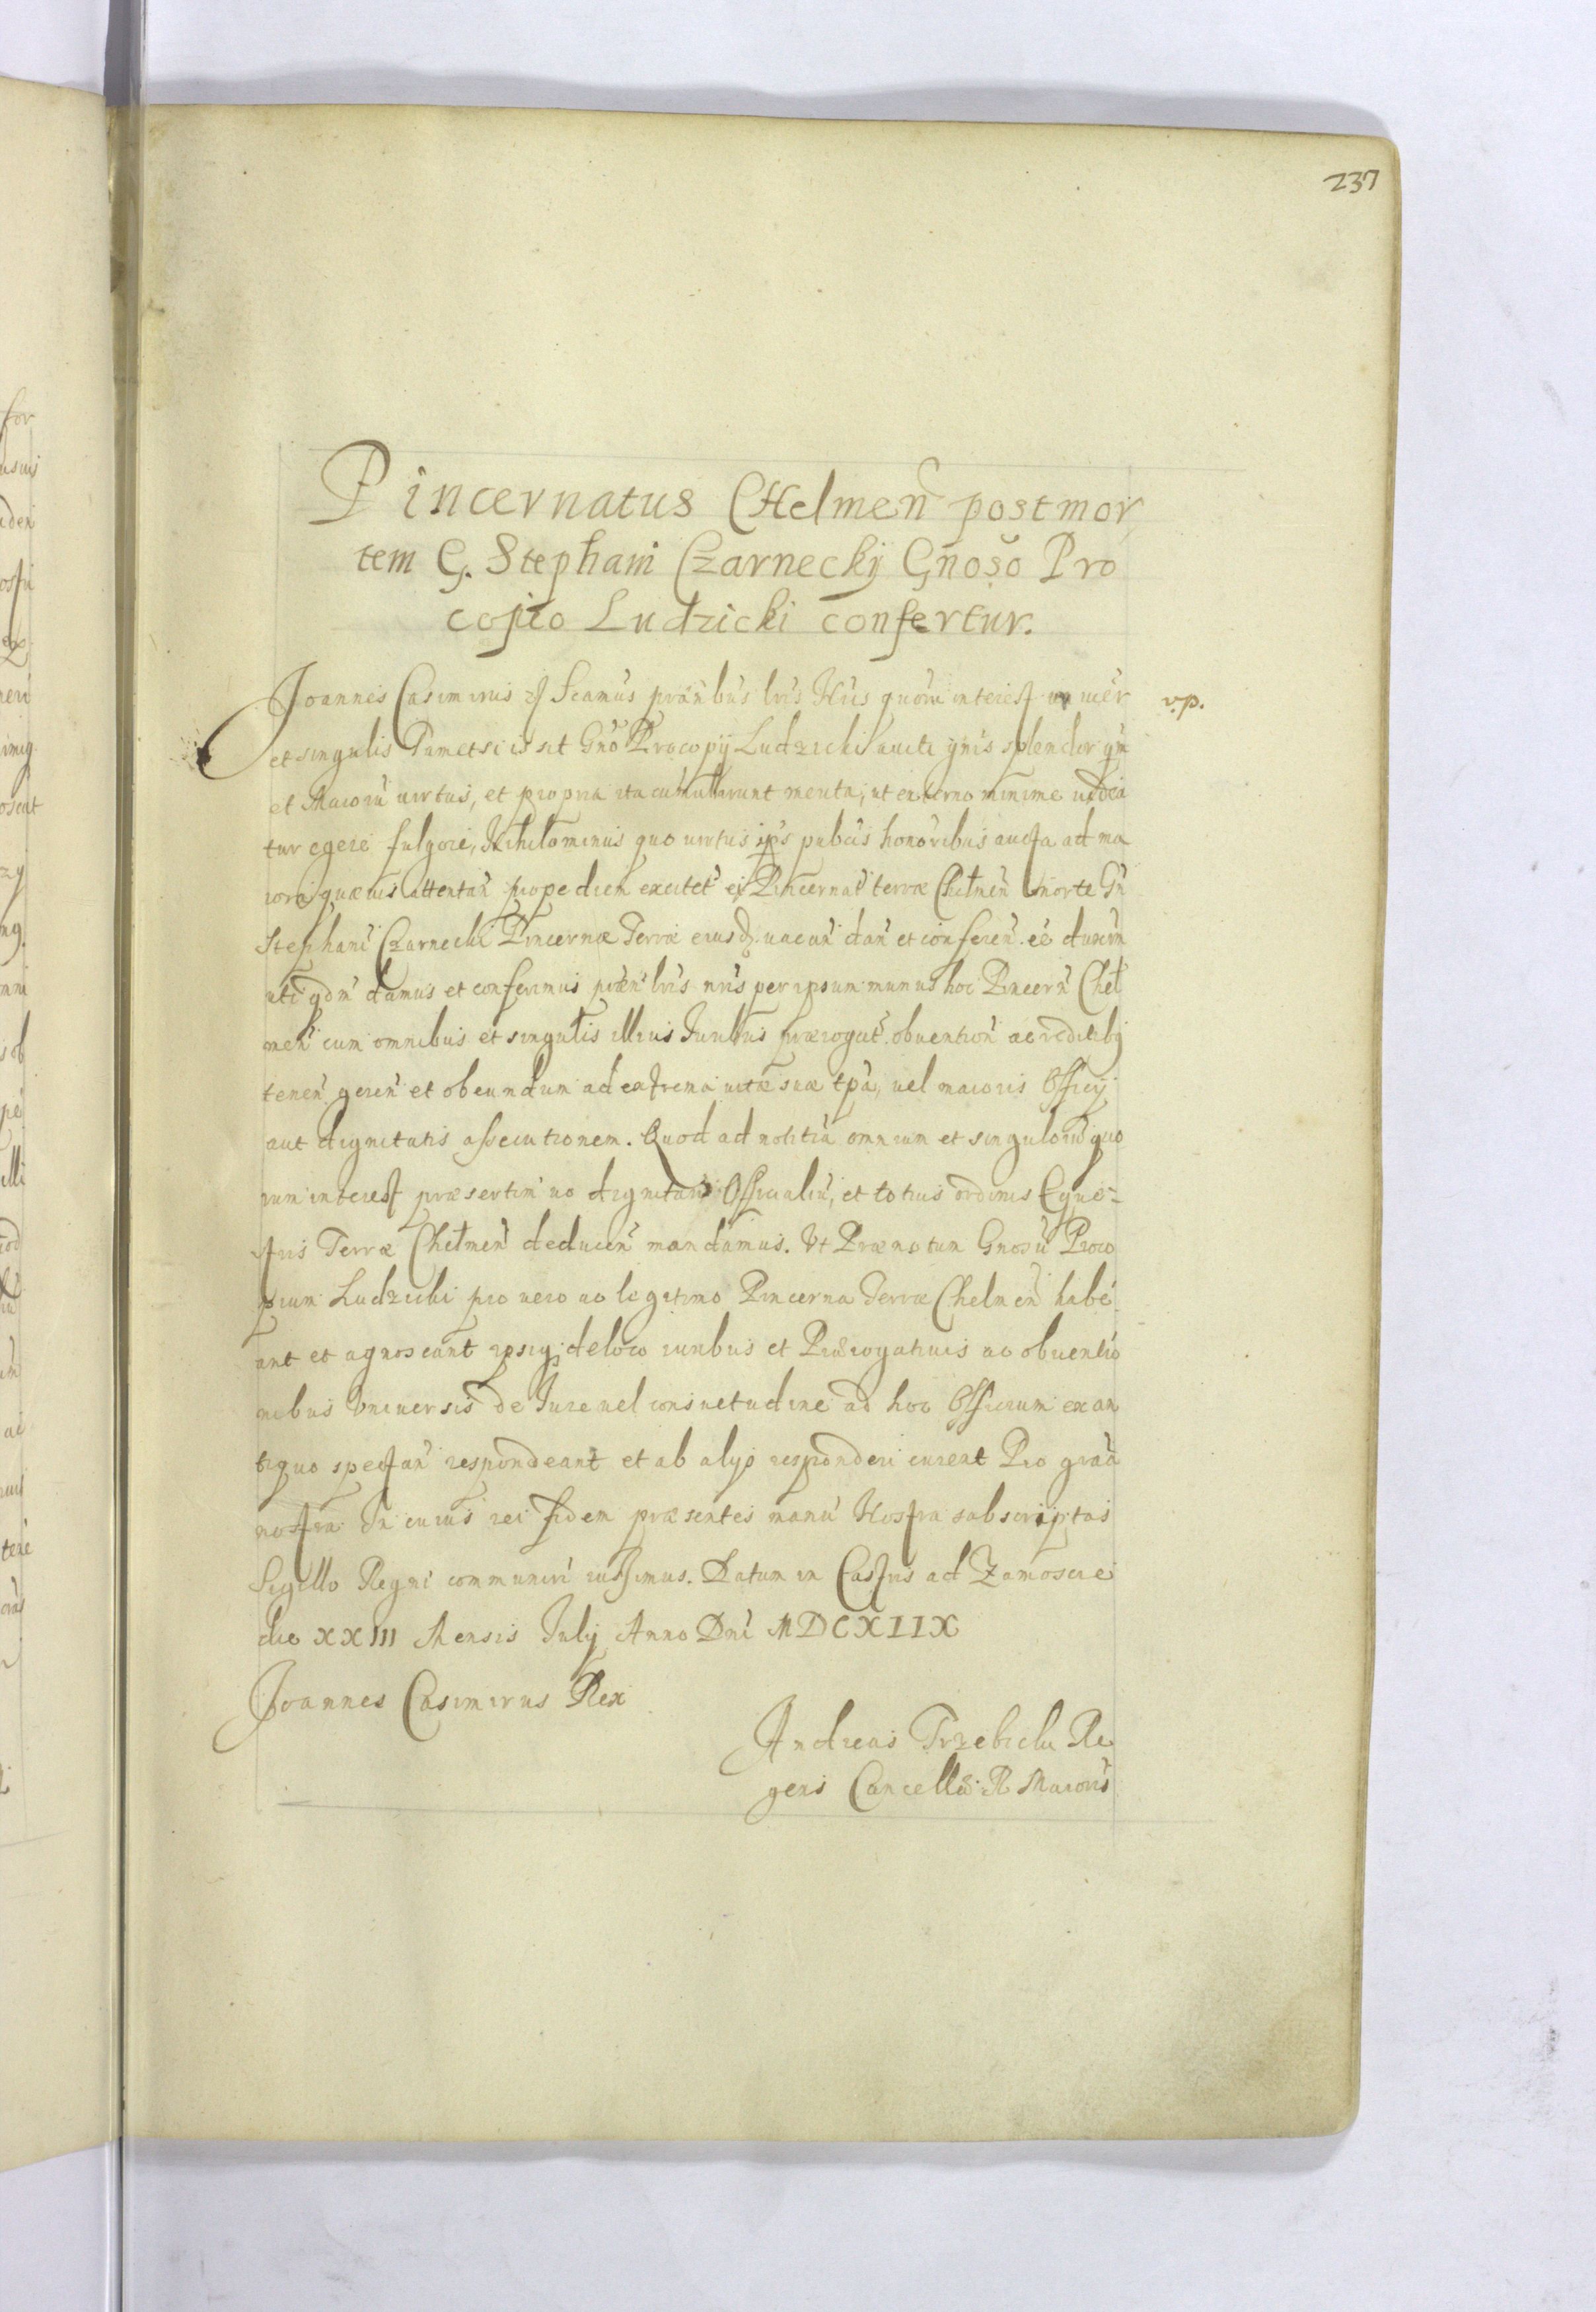 237
Pincernatus CHelmeñ post mor
tem G. Stephani Czarneckij Gñoso Pro
copio Ludzicki confertur.
Joannes Casimirus Scamus præñbus lris Nris quorũ interest un iuer
v.p.
et singulis Tametsi is sit Gño Procopij Ludzicki auiti gñis splendor qm
et Maiorũ uirtus, et propria ita cumularunt merita, ut externo minime uidea
tur egere fulgore, Nihilominus quo uirtus ips publis honoribus aucta ad ma
iora quæuis attentañ propediem excitet ei Pincernat terræ Chelmeñ morte Gñ
Stephani Czarnecki Pincernæ Terræ eiusd uacañ dañ et conferen eē duxim
uti qdm damus et conferimus præñ lris nris per ipsum munus hoc Pincerñ Chel
meñ cum omnibus et singulis illius Juribus prærogat obuention ac reditibq
teneñ gereñ et obeundum ad extrema uitæ suæ tpa, uel maioris Officij
aut dignitatis assecutionem. Quod ad notitiã omnium et singulorũ quo
rum interest præsertim uo dignitar Officialiũ, et totius ordinis Eques-
tris Terræ Chelmeñ deduceñ mandamus. Vt Prænotum Gnosũ Proco
pium Ludzicki pro uero ac legitimo Pincerna Terræ Chelmeñ habe
ant et agnoscant ipsiq de loco iuribus et Prærogatiuis ac obuentio
nibus Vniuersis de Jure uel consuetudine ad hoc Officium ex an
tiquo spectañ respondeant et ab alijs responderi curent Pro graã
nostra In cuius rei fidem præsentes manu Nostra subscriptas
Sigillo Regni communiri iussimus. Datum in Castris ad Zamoscie
die XXIII Mensis Julij Anno Dni MDCXIIX
Joannes Casimirus Rex
Andreas Trzebicki Re
gens Cancellæ R Maioris